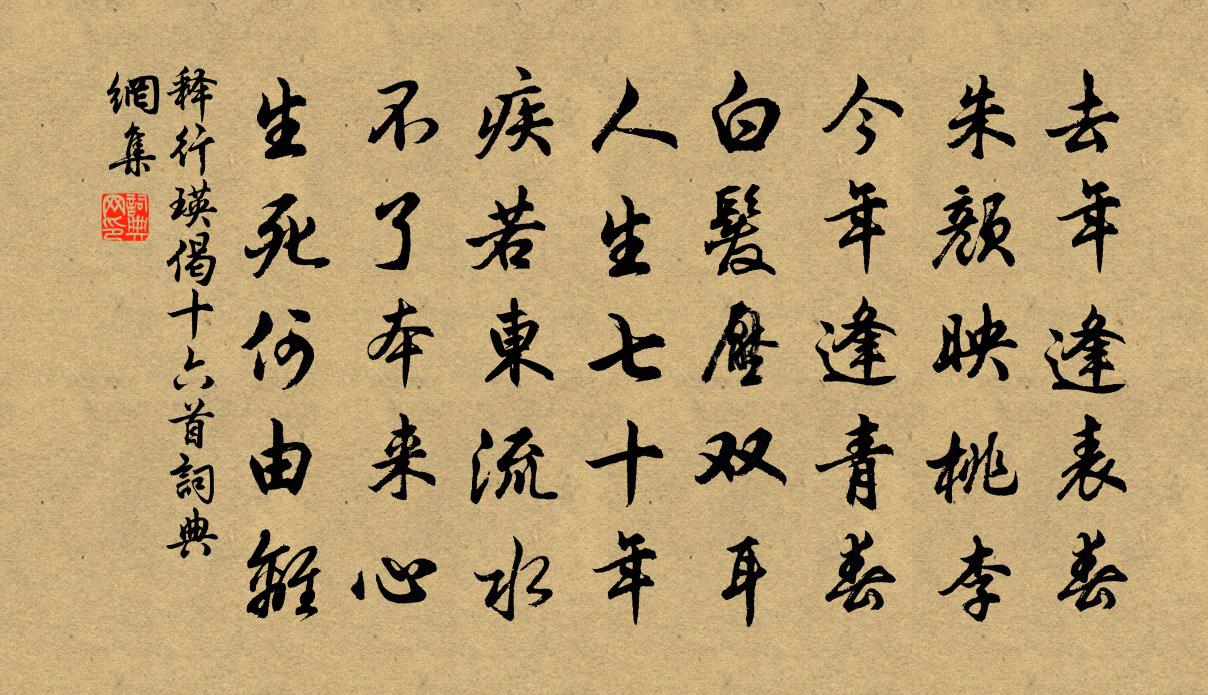 去年逢表春
朱顔映桃李
今年逢青春
白髮壓双耳
人生七十年
疾若東流水
不了本来心
生死何由離
释行瑛偈十六首詞典
網集
詞典网印